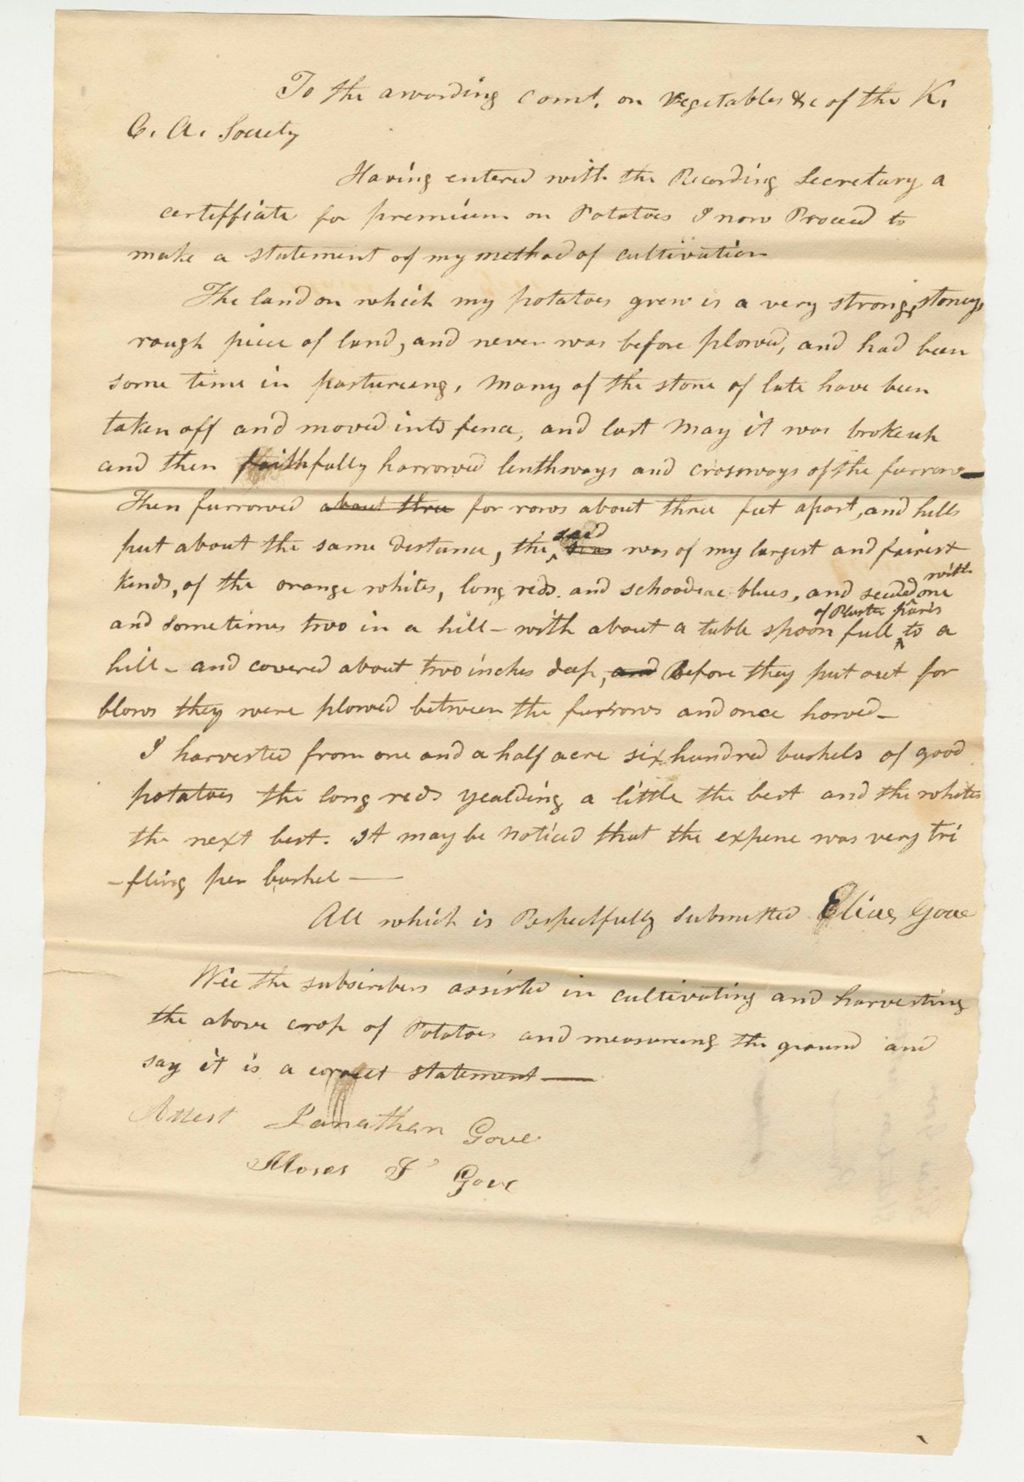 To the awarding Comt. on Vegetables &c of the K.
C. A. Society
Having entered with the Recording Secretary a
certiffiate for premium on Potatoes I now Proceed to
make a statement of my method of cultivation
The land on which my potatoes grew is a very strong, stoney
rough piece of land, and never was before plowed, and had been
some time in pastureing, Many of the stone of late have been
taken off and moved into fence, and last May it was broke up
and then faithfully harrowed lenthways and crossways of the furrow—
Then furrowed about three for rows about three feet apart, and hills
said
put about the same distance, the was of my largest and fairest
kinds, of the orange whites, long reds. and schoodiac blues, and seeded one
with
of Plaster paris
and sometimes two in a hill – with about a table spoon full to a
hill – and covered about two inches deep, and Before they put out for
blows they were plowed between the furrows and once howed—
I harvested from one and a half acre six hundred bushels of good
potatoes the long reds yealding a little the best and the whites
the next best. It may be noticed that the expene was very tri
-fling per bushel —
All which is Respectfully submitted Elias Gove
Wee the subscribers assisted in cultivating and harvesting
the above crop of Potatoes and measureing the ground and
say it is a correct statement —
Attest Janathan Gove
Moses F Gove